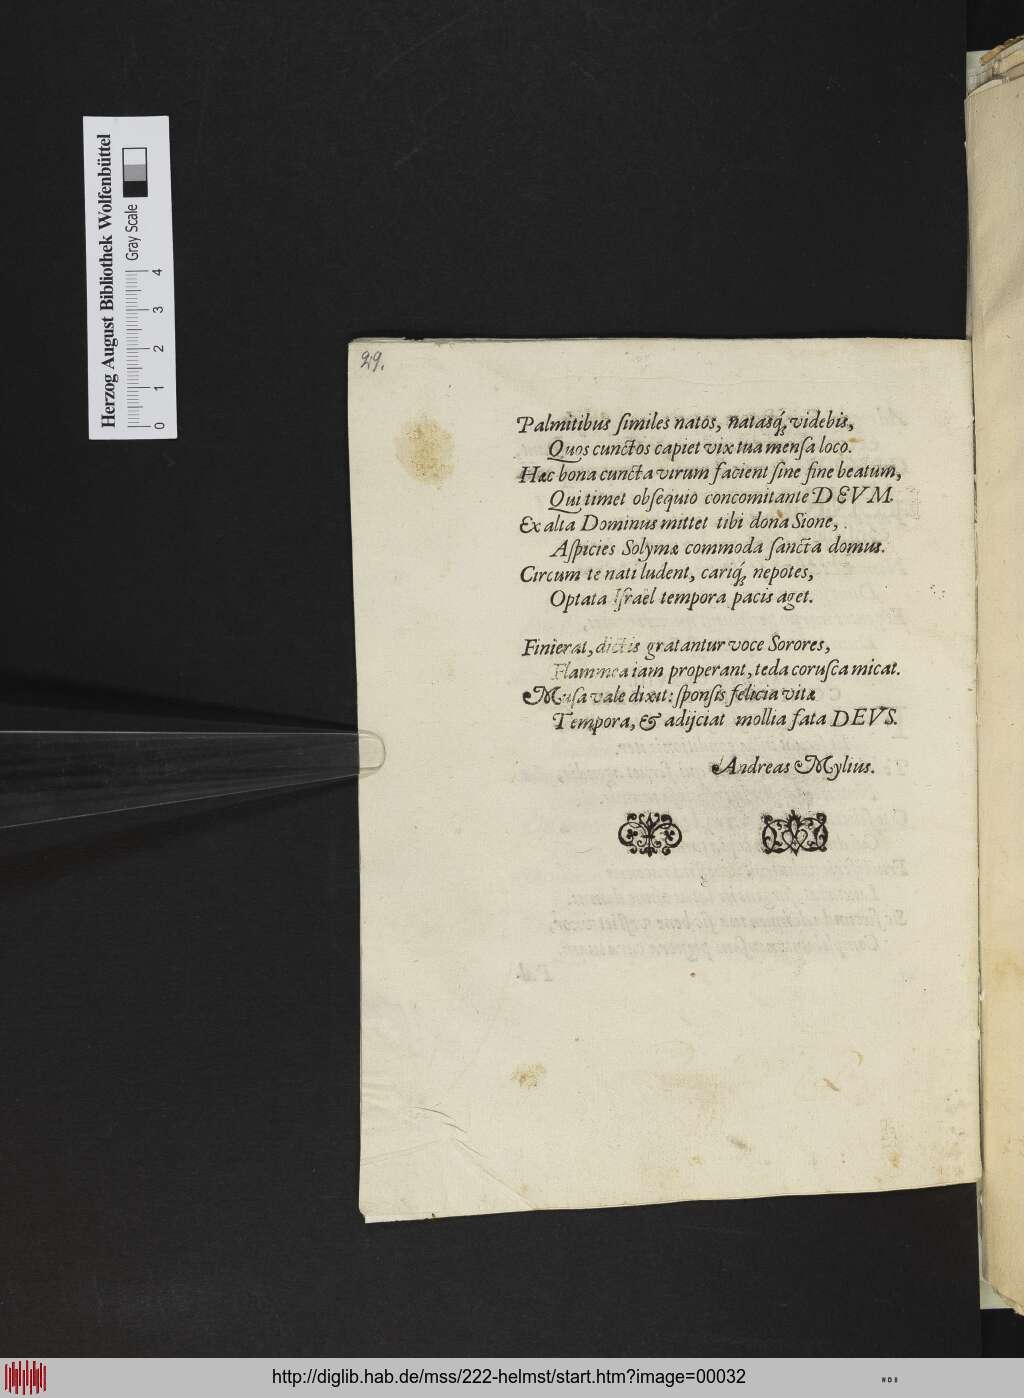 Herzog August Bibliothek Wolfenbüttel
Gray Scale
0 1 2 3 4
29.
Palmitibus ſimiles natos, natasq́; videbis,
Quos cunctos capiet vix tua menſa loco.
Hæc bona cuncta virum facient ſine fine beatum,
Qui timet obſequio concomitante DEVM.
Ex alta Dominus mittet tibi dona Sione,
Aſpicies Solymæ commoda ſancta domus.
Circum te nati ludent, cariq́; nepotes,
Optata Iſraël tempora pacis aget.
Finierat, dictis gratantur voce Sorores,
Flammea iam properant, teda coruſca micat.
Muſa vale dixit: ſponſis felicia vitæ
Tempora, & adijciat mollia fata DEVS.
Andreas Mylius.
http://diglib.hab.de/mss/222-helmst/start.htm?image=00032